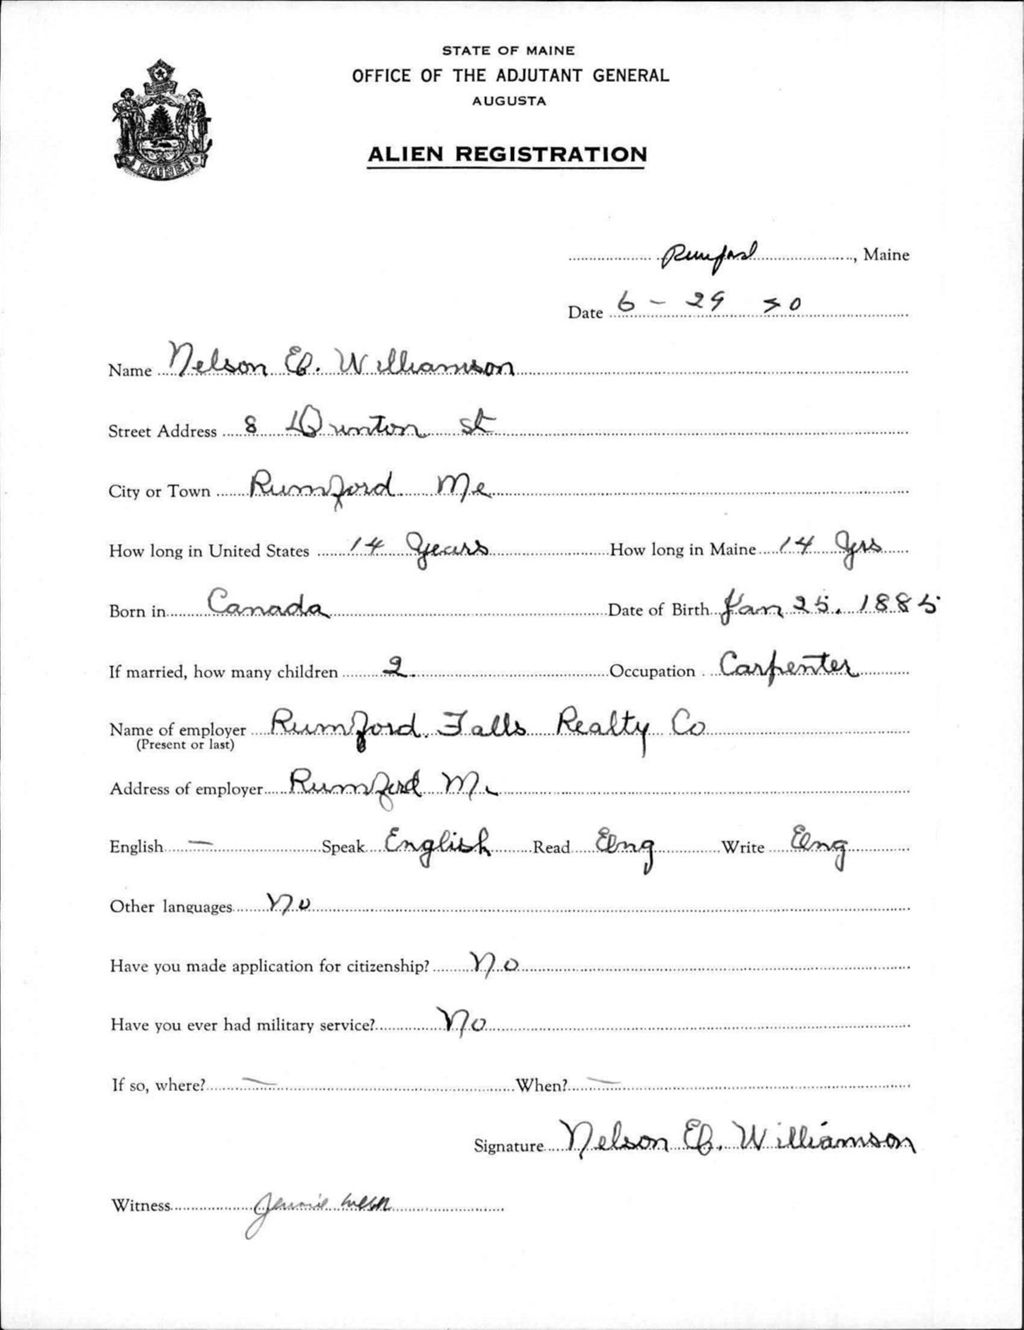 STATE OF MAINE
OFFICE OF THE ADJUTANT GENERAL
AUGUSTA
ALIEN REGISTRATION
MAINE
Rumford, Maine
Date 6 - 29
Name Nelson E. Williamson
Street Address 8 Dunton St
City or Town Rumford Me
How long in United States 14 Years How long in Maine 14 Yrs
Born in Canada Date of Birth Jan 25. 1885
If married, how many children 2 Occupation Carpenter
Name of employer Rumford Falls Realty Co
(Present or last)
Address of employer Rumford Me
English — Speak English Read Eng Write Eng
Other languages No
Have you made application for citizenship? No
Have you ever had military service? No
If so, where? — When? —
Signature Nelson E. Williamson
Witness Jennie